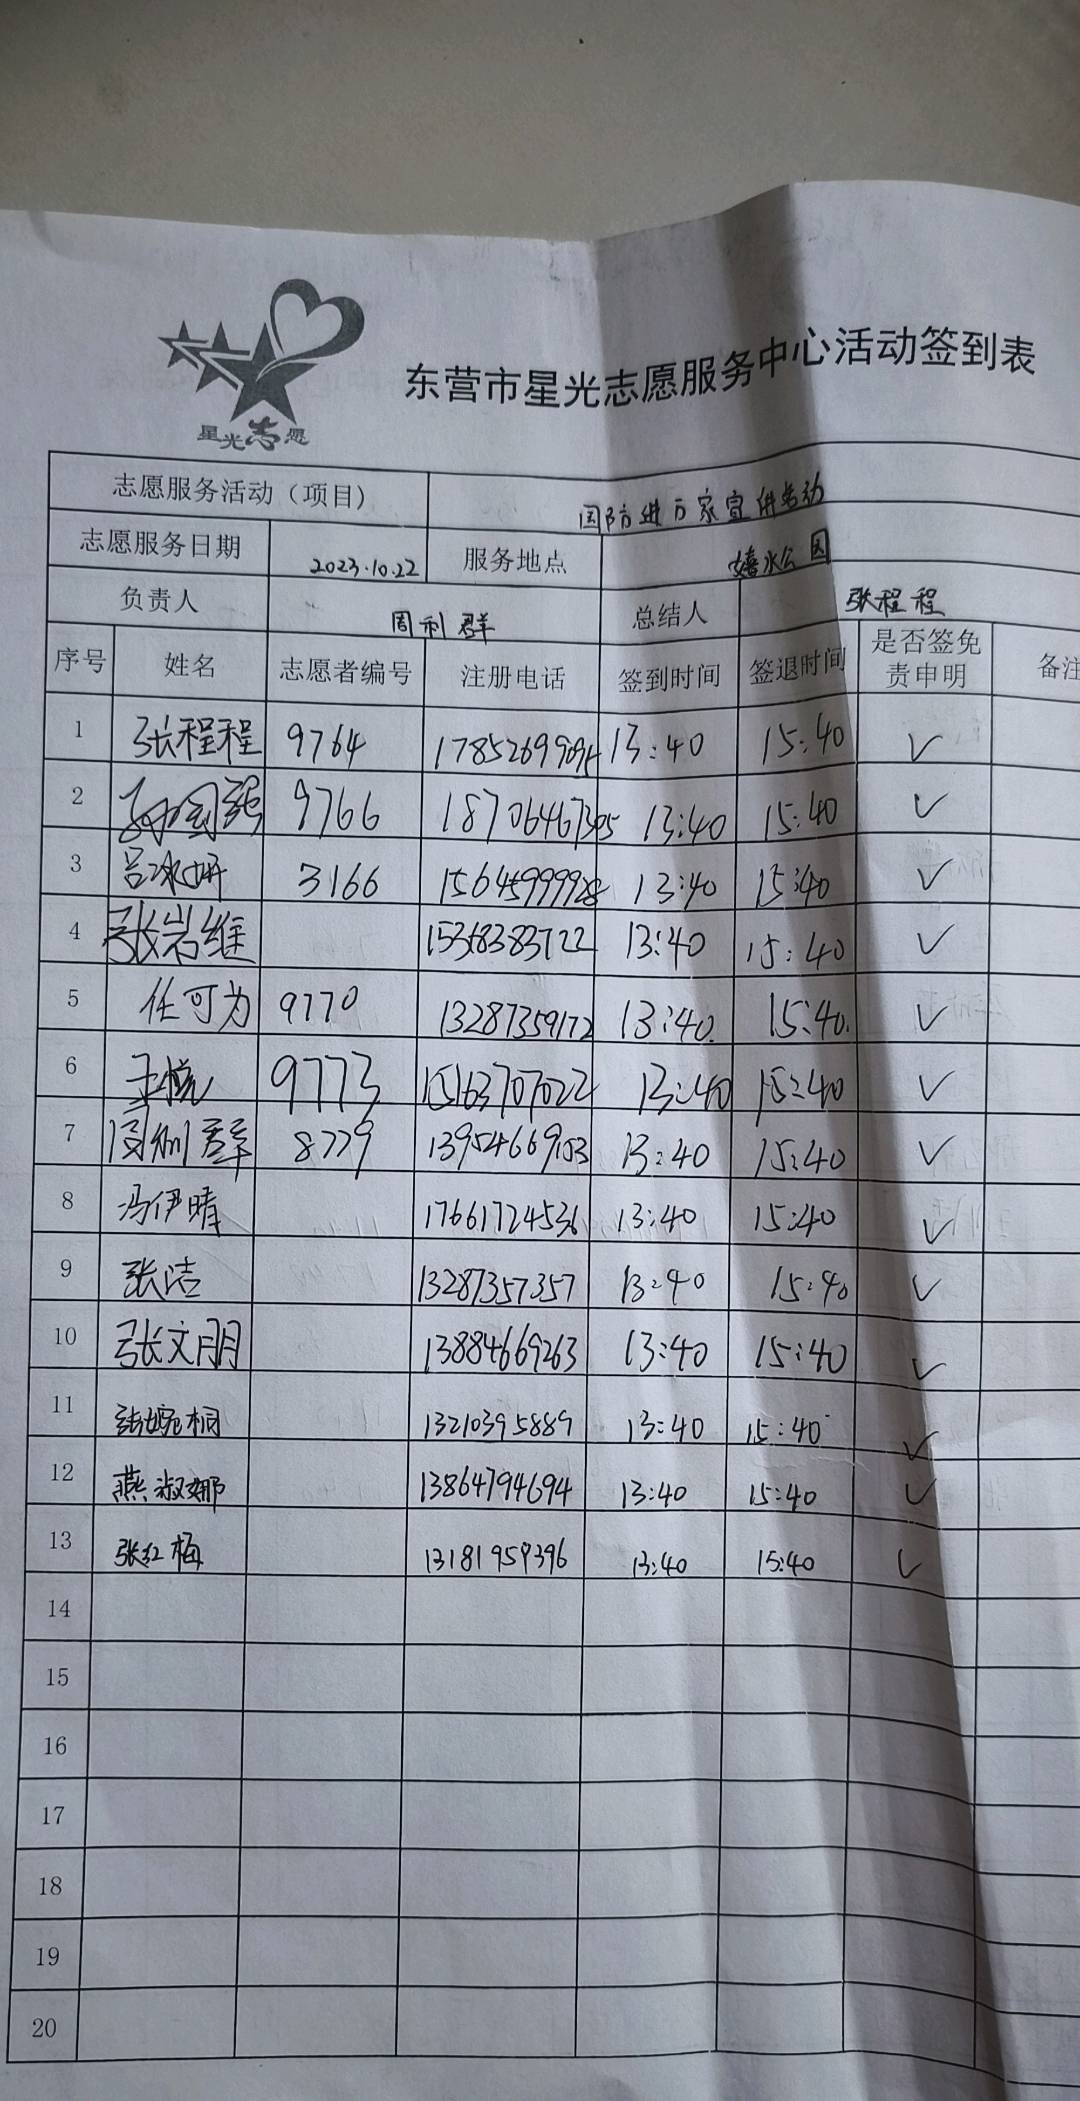 星光志愿
东营市星光志愿服务中心活动签到表
志愿服务活动（项目） 国防进万家宣讲活动
志愿服务日期 2023.10.22 服务地点 嬉水公园
负责人 周利群 总结人 张程程
序号 姓名 志愿者编号 注册电话 签到时间 签退时间 是否签免责申明 备注
1 张程程 9764 13:40 15:40 ✓
2 孙国强 9766 18706467305 13:40 15:40 ✓
3 吕冰妍 3166 15645999928 13:40 15:40 ✓
4 张岩维 15368383722 13:40 15:40 ✓
5 任可为 9770 13287359172 13:40 15:40 ✓
6 王悦 9773 15163707022 13:40 15:40 ✓
7 周利群 8779 13954669153 13:40 15:40 ✓
8 冯伊晴 17661724536 13:40 15:40 ✓
9 张洁 13287357357 13:40 15:40 ✓
10 张文朋 13884669263 13:40 15:40 ✓
11 张婉桐 13210395889 13:40 15:40 ✓
12 燕淑娜 13864794694 13:40 15:40 ✓
13 张红梅 13181959396 13:40 15:40 ✓
14
15
16
17
18
19
20